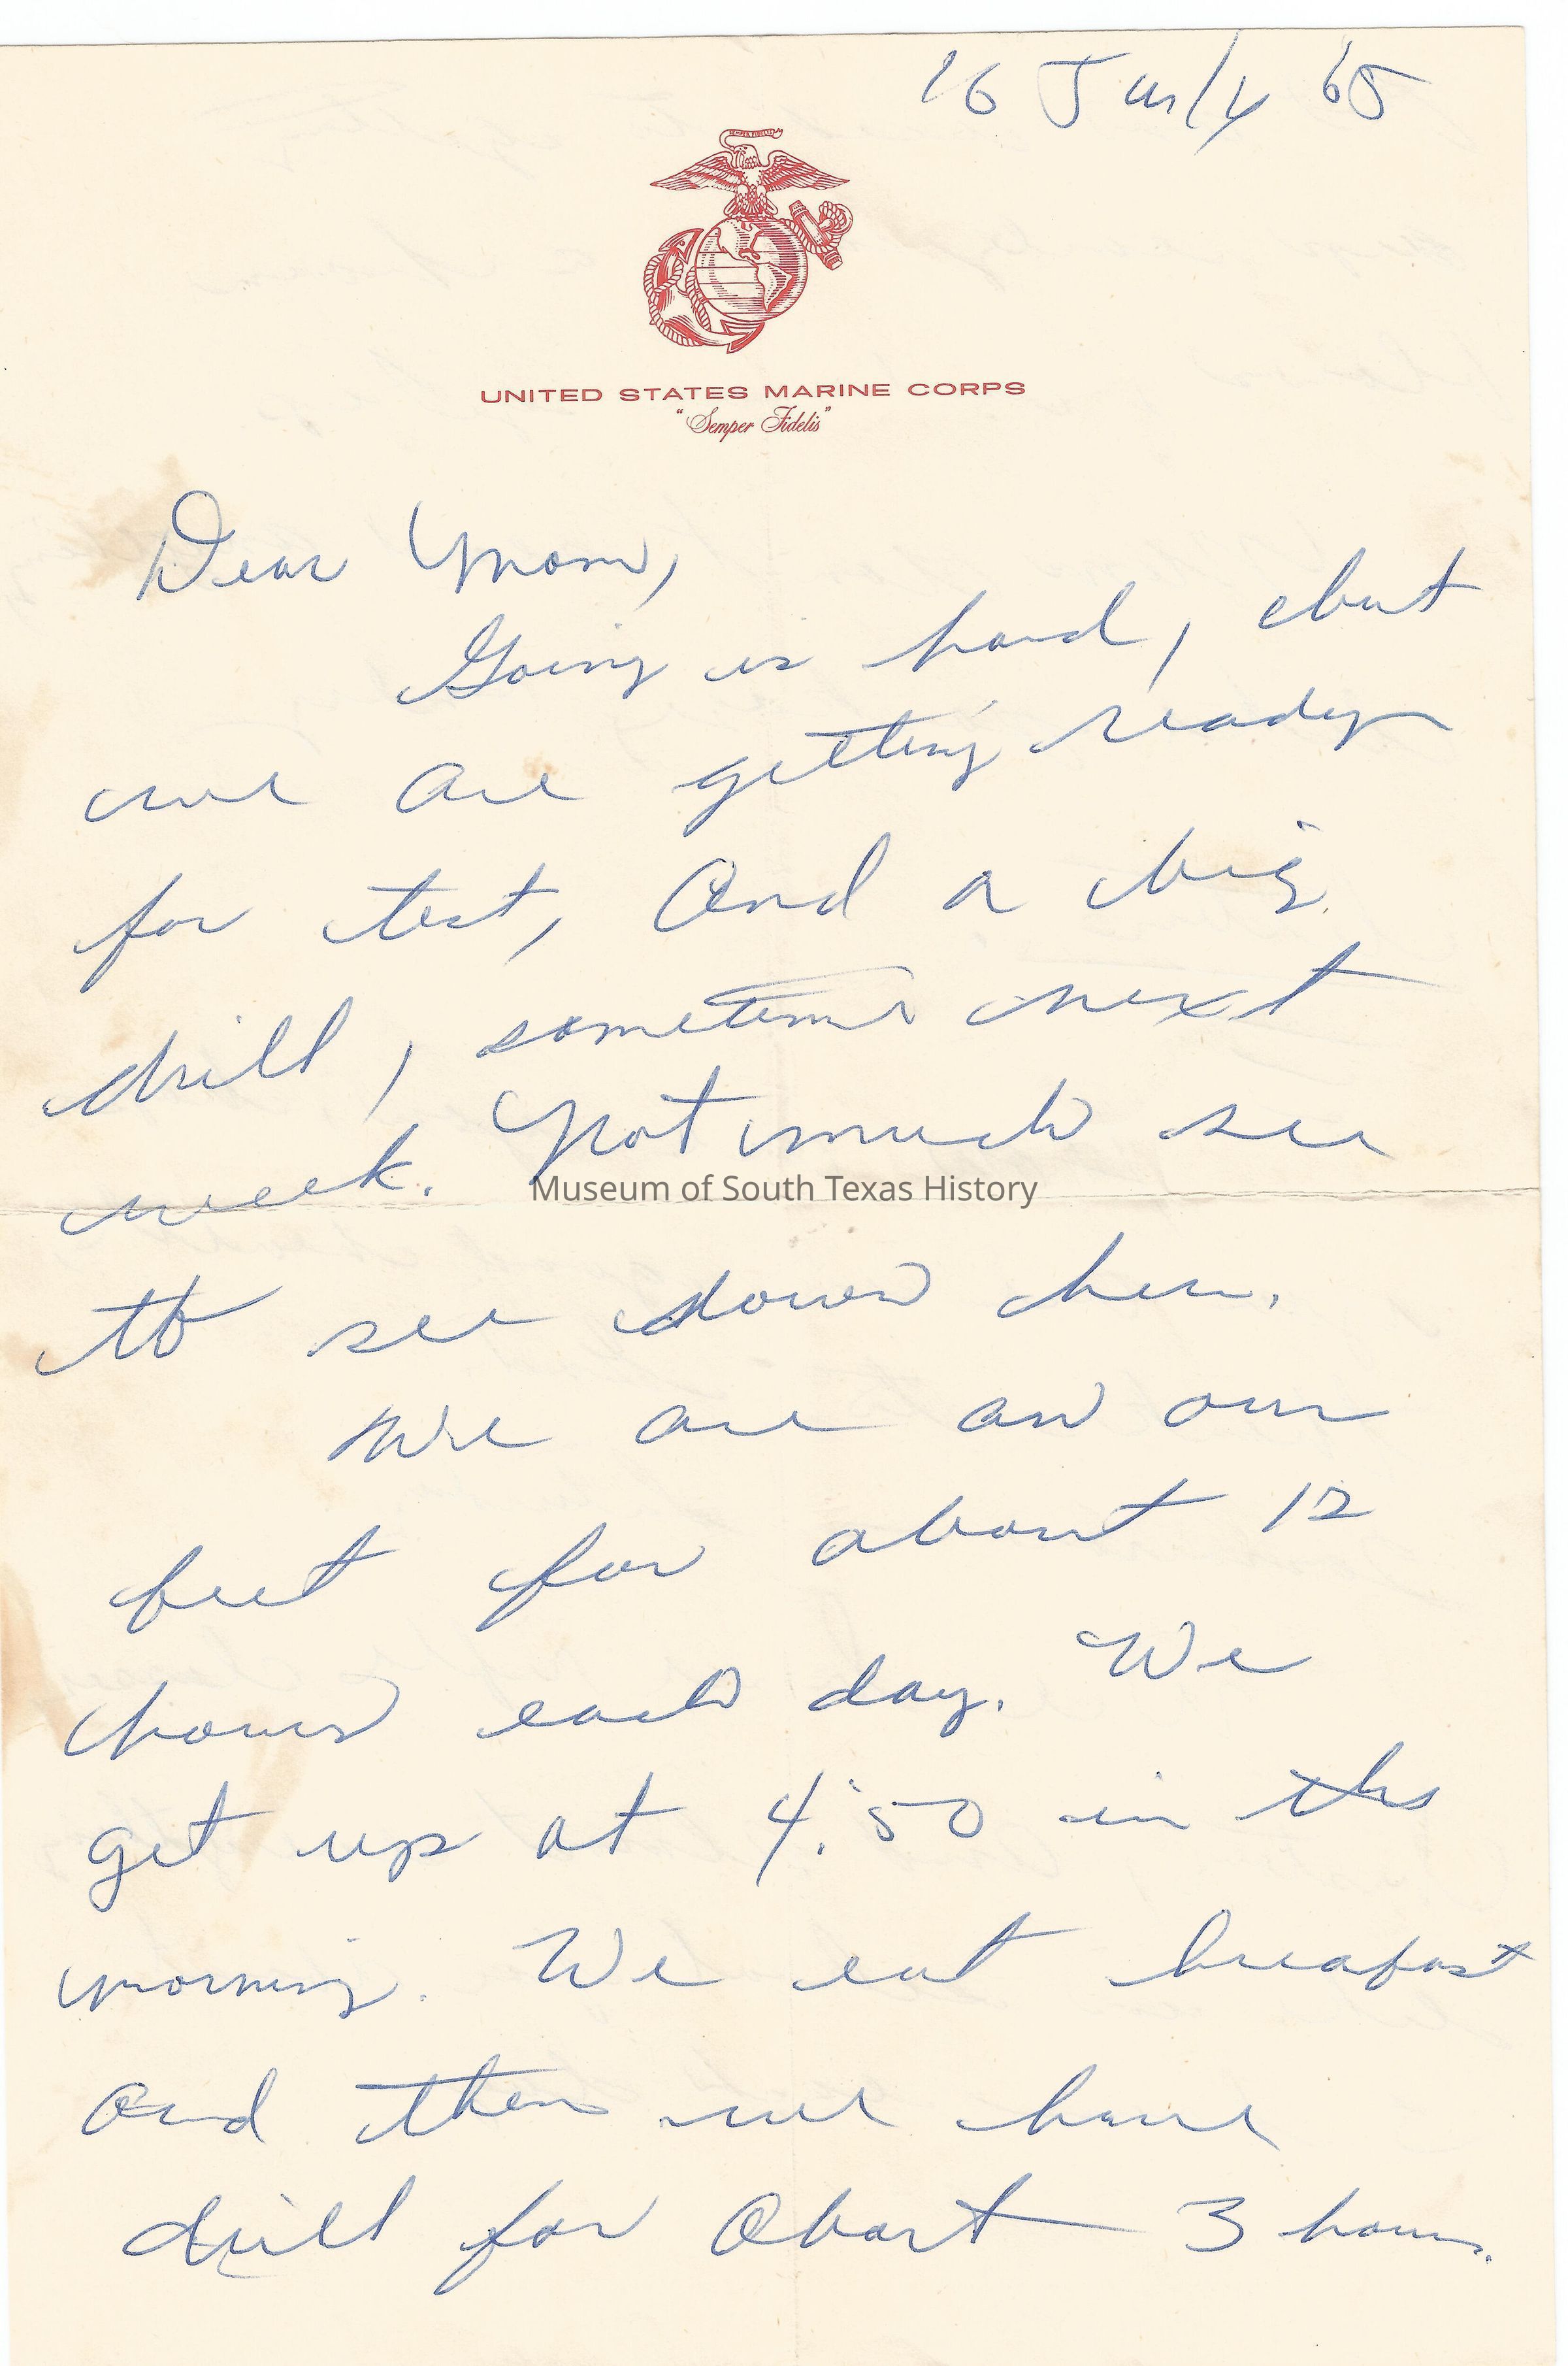 16 July 65
SEMPER FIDELIS
UNITED STATES MARINE CORPS
"Semper Fidelis"
Dear Mom,
Going is hard, but
we are getting ready
for test, And a big
drill, sometime next
week. Not much
Museum of South Texas History
to see down here.
We are on our
feet for about 12
hours each day. We
get up at 4:50 in the
morning. We eat breafast
And then we have
drill for About 3 hours.